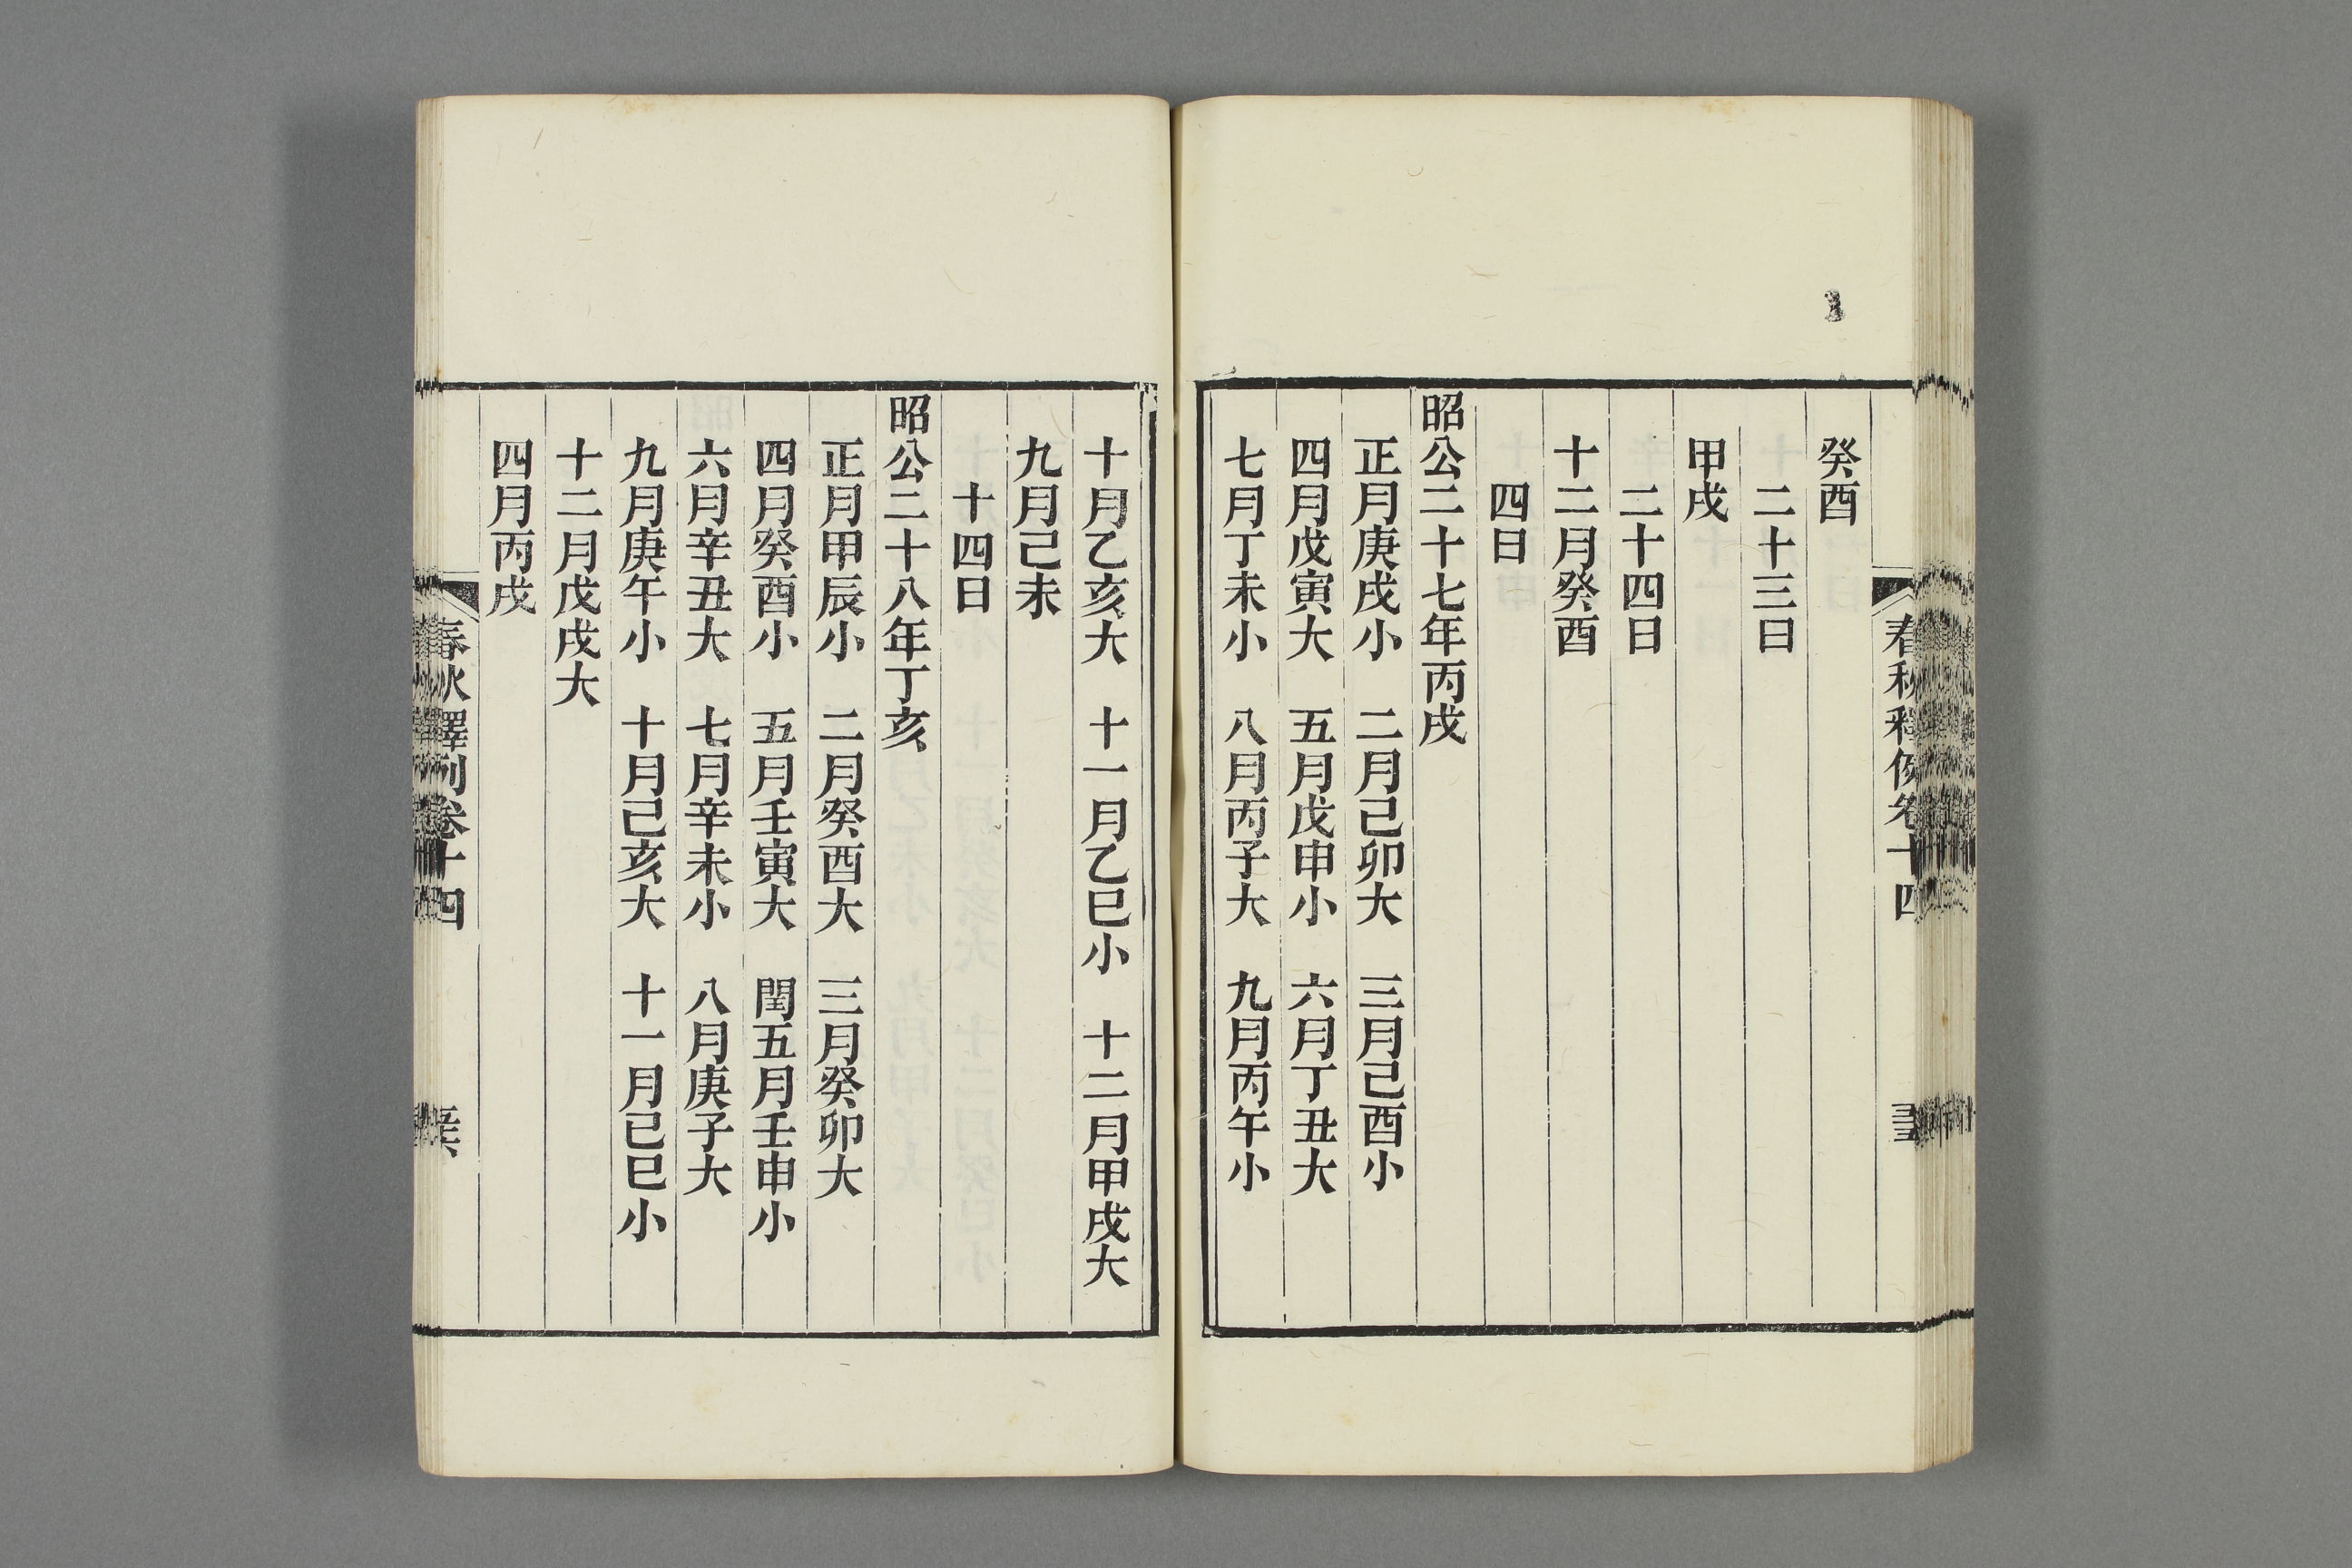 春秋釋例卷十四
癸酉
二十三日
甲戌
二十四日
十二月癸酉
四日
昭公二十七年丙戌
正月庚戌小　二月己卯大　三月己酉小
四月戊寅大　五月戊申小　六月丁丑大
七月丁未小　八月丙子大　九月丙午小
十月乙亥大　十一月乙巳小　十二月甲戌大
九月己未
十四日
昭公二十八年丁亥
正月甲辰小　二月癸酉大　三月癸卯大
四月癸酉小　五月壬寅大　閏五月壬申小
六月辛丑大　七月辛未小　八月庚子大
九月庚午小　十月己亥大　十一月己巳小
十二月戊戌大
四月丙戌
春秋釋例卷十四